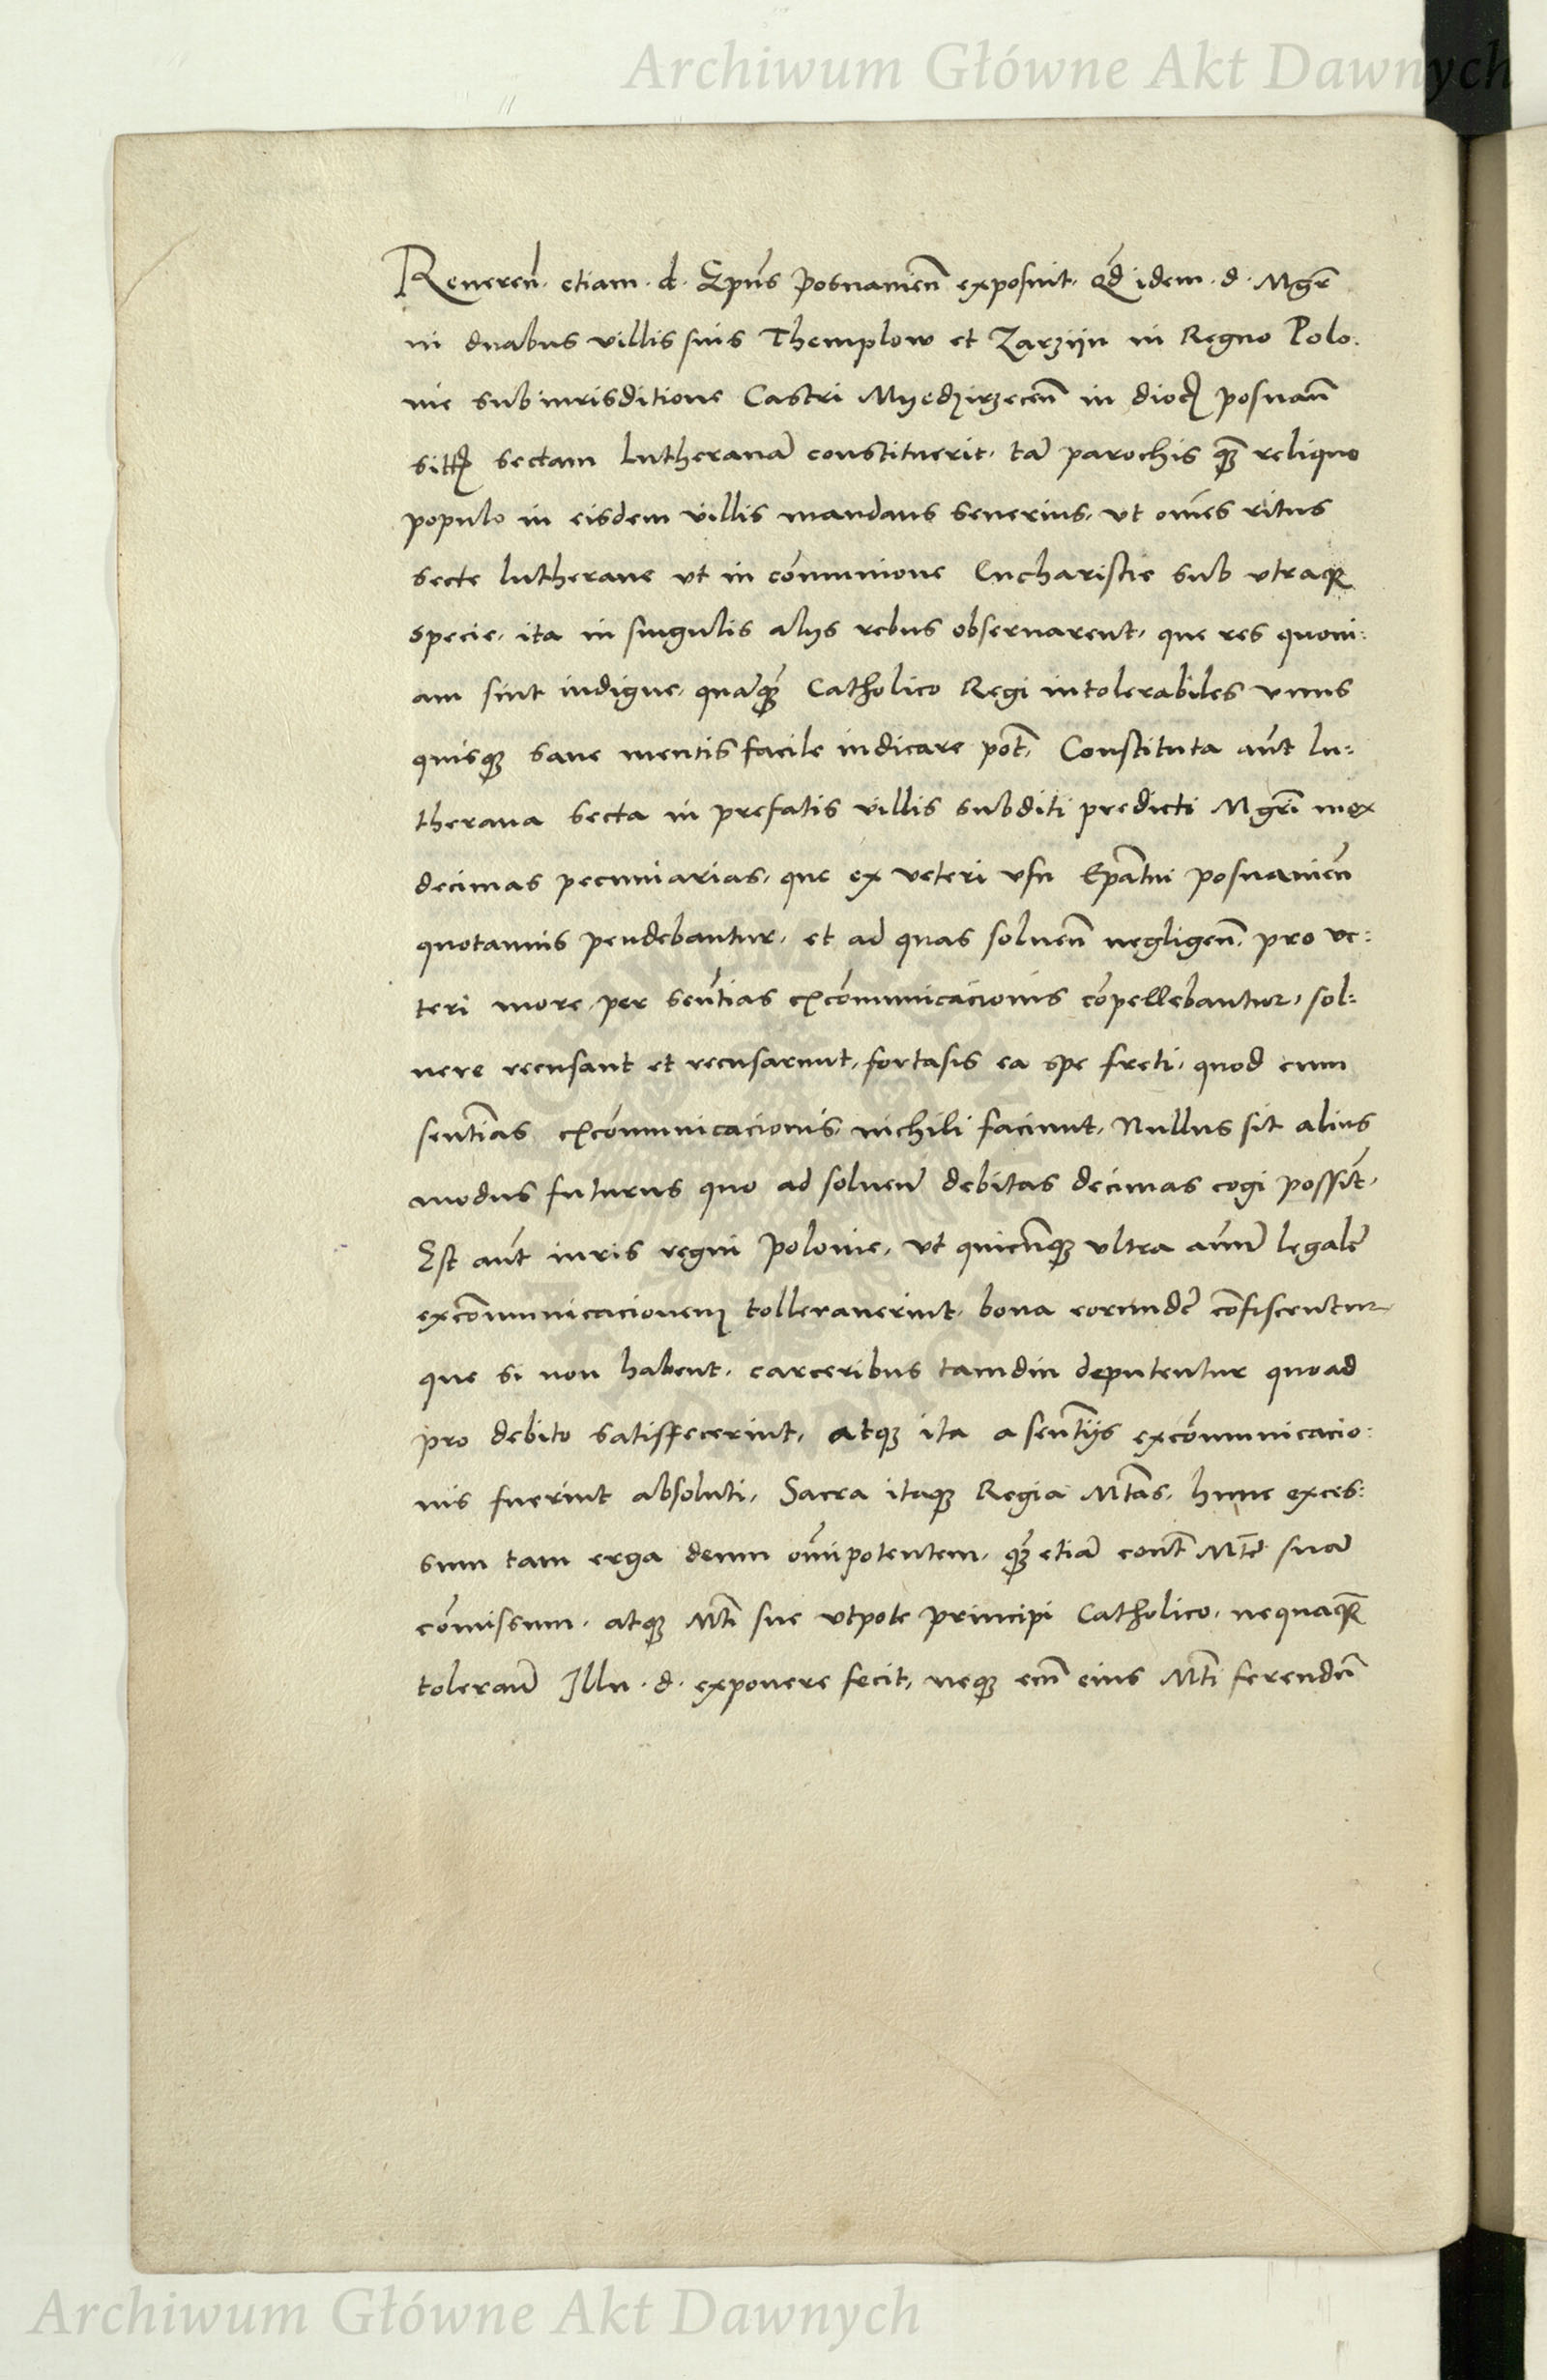 Archiwum Główne Akt Dawnych
Reveren̄. etiam. d. Ep̄us Posnanien̄ exposuit. Qd̄ idem. d. Mgr̄
in duabus villis suis Themplow et Zarziin in Regno Polo.
nie sub iurisditione Castri Myedzirzecen̄ in dioc̄ posnan̄
sitt̄ sectam Lutheranā constituerit. tā parochis qꝫ̄ reliquo
populo in eisdem villis mandans severius. vt om̄es ritus
secte lutherane vt in com̄unione Eucharistie sub vtraqꝫ
specie. ita in singulis alijs rebus observarent. que res quoni:
am sint indigne. quāqꝫ̄ Catholico Regi intolerabiles vnus
quisqꝫ sane mentis facile iudicare pōt. Constituta aūt Lu:
therana secta in prefatis villis subditi predicti Mgr̄i mox
decimas pecuniarias. que ex veteri vsu Ep̄atui posnanien̄
quotannis pendebantur. et ad quas soluen̄ negligen̄. pro ve:
teri more per sen̄tias excōmunicacionis cōpellebantur. sol:
vere recusant et recusarunt. fortasis ea spe freti. quod cum
sen̄tias excōmunicacionis. nichili faciunt. Nullus sit alius
modus futurus quo ad soluen̄ debitas decimas cogi possīt.
Est aūt iuris regni Polonie. vt quicūqꝫ vltra annū legalē
excōmunicacionem tolleraverint. bona eorundē cōfiscentur
que si non habent. carceribus tamdiu deputentur quoad
pro debito satisffecerint. atqꝫ ita a sentijs excōmunicacio:
nis fuerint absoluti. Sacra itaqꝫ Regia Mtās. hunc exces:
sum tam erga deum om̄ipotentem. qꝫ̄ etiā cont̄ Mtē̄ suā
cōmissum. atqꝫ Mti sue vtpote principi Catholico. nequaqꝫ̄
toleran̄ Illu. d. exponere fecit. neqꝫ em̄ eius Mti ferendū
Archiwum Główne Akt Dawnych